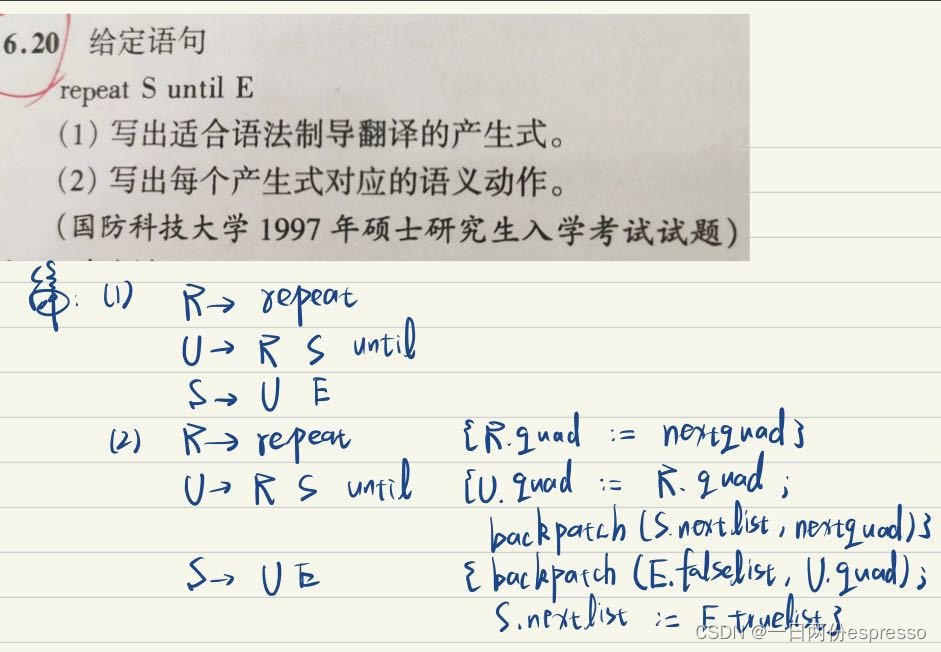 6.20 给定语句
repeat S until E
(1) 写出适合语法制导翻译的产生式。
(2) 写出每个产生式对应的语义动作。
(国防科技大学 1997 年硕士研究生入学考试试题)
(1) R→ repeat
U→ R S until
S→ U E
(2) R→ repeat {R.quad := nextquad}
U→ R S until {U.quad := R.quad ;
backpatch (S.nextlist, nextquad)}
S→ U E { backpatch (E.falselist, U.quad);
S.nextlist := E.truelist}
CSDN @一日两份espresso